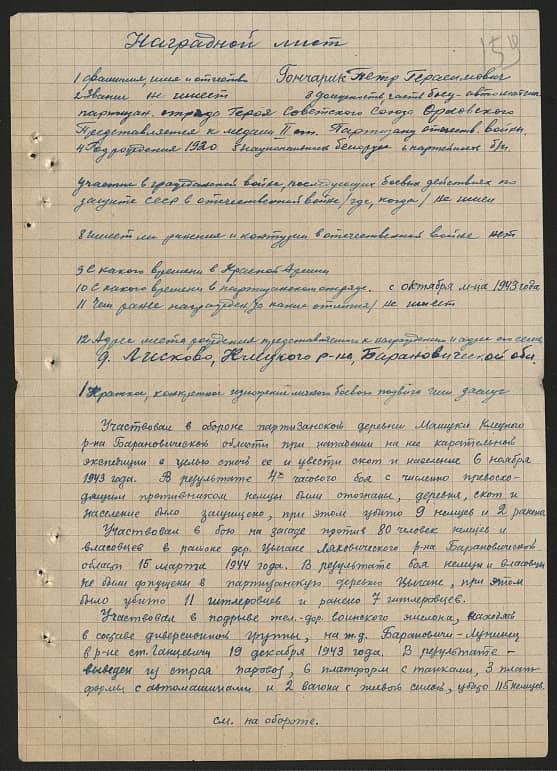 Наградной лист
1 фамилия, имя и отчество Гончарик Петр Герасимович
2 Звание не имеет 3 должность, часть боец-автоматчик
партизан. отряда Героя Советского Союза Орловского
Представляется к медали II ст. Партизану отечеств. войны
4 Год рождения 1920 5 национальность белорус 6 партийность б/п.
участие в гражданской войне, последующих боевых действиях по
защите СССР в отечественной войне /где, когда/ не имел
8 имеет ли ранения и контузии в отечественной войне нет
9 С какого времени в Красной Армии
10 С какого времени в партизанском отряде. с октября м-ца 1943 года
11 Чем ранее награжден/за какие отличия/ не имеет
12 Адрес места рождения представляемого к награждению и адрес его семьи
д. Лисково, Клецкого р-на, Барановической обл.
1 Краткое, конкретное изложение личного боевого подвига или заслуг
Участвовал в обороне партизанской деревни Машуки Клецкого
р-на Барановической области при нападении на нее карательной
экспедиции с целью сжечь ее и увести скот и население 6 ноября
1943 года. В результате 4х часового боя с численно превосхо-
дящим противником немцы были отогнаны, деревня, скот и
население было защищено, при этом убито 9 немцев и 2 ранено.
Участвовал в бою на засаде против 80 человек немцев и
власовцев в районе дер. Цыгане Ляховического р-на Барановичской
области 15 марта 1944 года. В результате боя немцы и власовцы
не были допущены в партизанскую деревню Цыгане, при этом
было убито 11 гитлеровцев и ранено 7 гитлеровцев.
Участвовал в подрыве жел-дор. воинского эшелона, находясь
в составе диверсионной группы, на ж.д. Барановичи-Лунинец
в р-не ст. Ганцевичи 19 декабря 1943 года. В результате-
выведен из строя паровоз, 6 платформ с танками, 3 плат-
формы с автомашинами и 2 вагона с живой силой, убито 115 немцев.
см. на обороте.